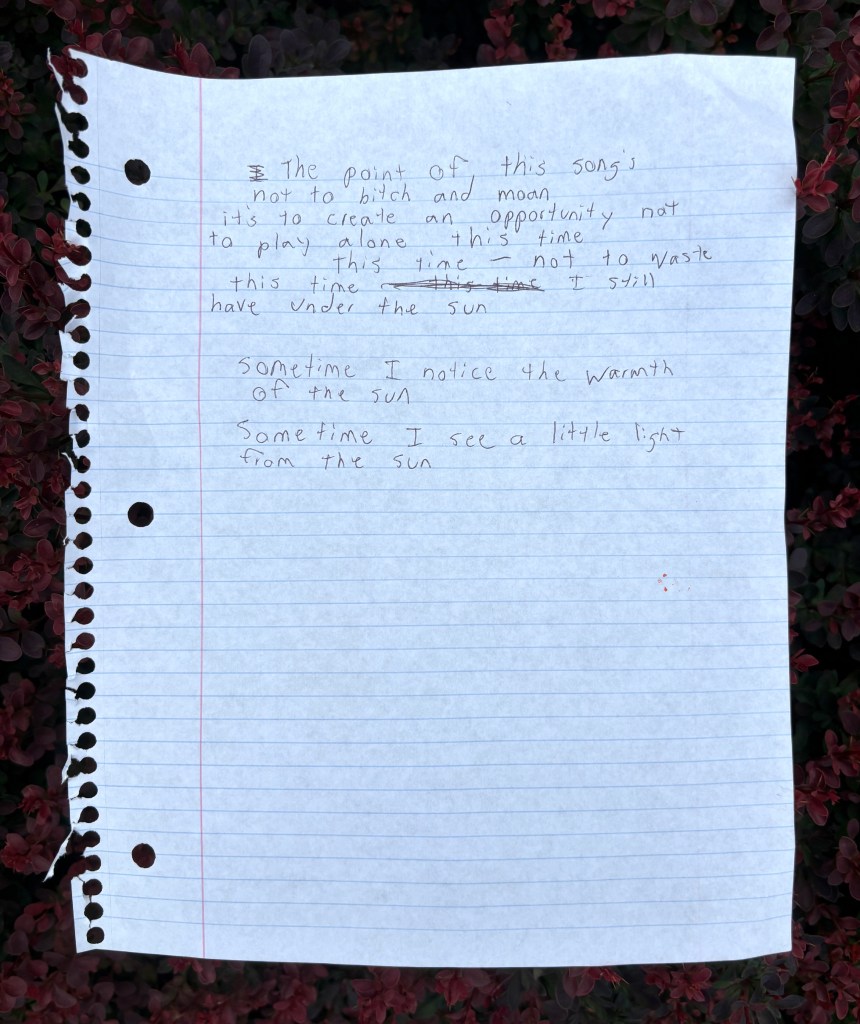 The point of this song's
not to bitch and moan
it's to create an opportunity not
to play alone this time
this time – not to waste
this time this time I still
have under the sun
Sometime I notice the warmth
of the sun
Sometime I see a little light
from the sun